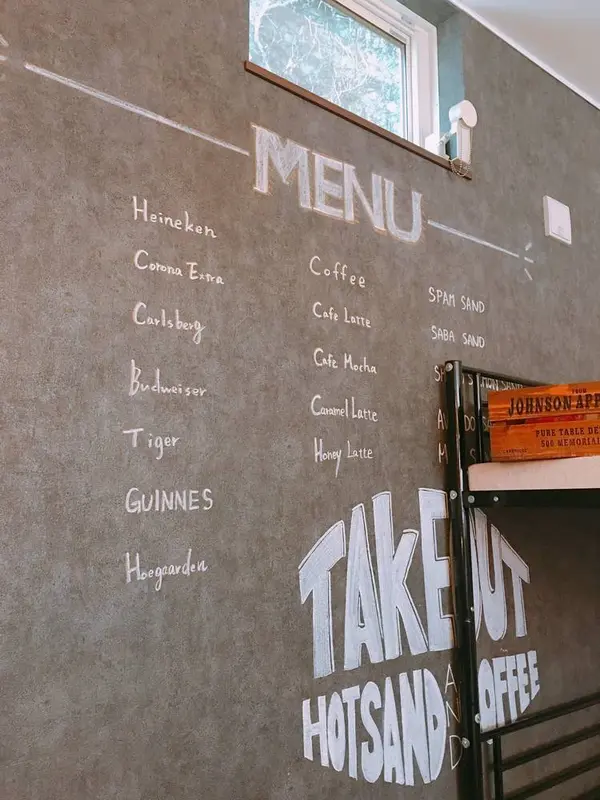 MENU
Heineken
Corona Extra
Carlsberg
Budweiser
Tiger
GUINNES
Hoegaarden
Coffee
Cafe Latte
Cafe Mocha
Caramel Latte
Honey Latte
SPAM SAND
SABA SAND
TAKE OUT
HOTSAND AND COFFEE
FROM
JOHNSON APP
PURE TABLE DE
500 MEMORIAL